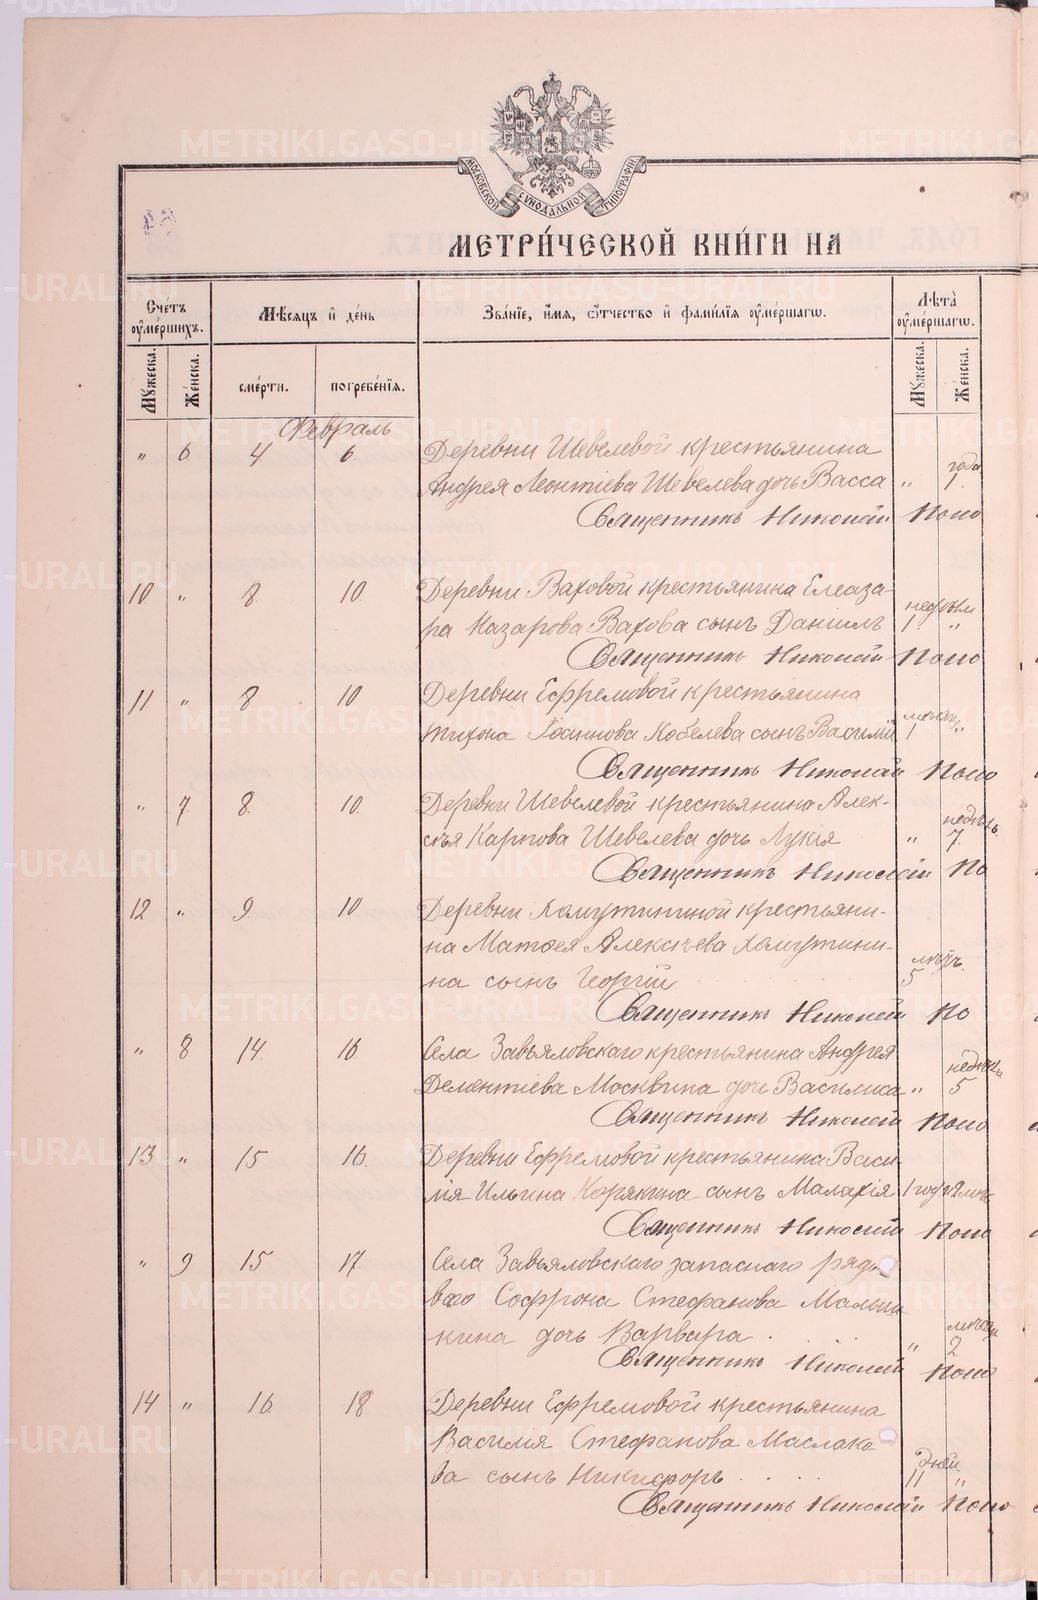 МОСКОВСКОЙ СѴНОДАЛЬНОЙ ТИПОГРАФІИ
МЕТРИ́ЧЕСКОЙ КНИ́ГИ НА
Сче́тъ ᲂу҆ме́ршихъ.
Мѣ́сѧцъ и҆ де́нь
Зва́нїе, и҆́мѧ, ѻ҆́тчество и҆ фамилі́ѧ ᲂу҆ме́ршагѡ.
Лѣ́та ᲂу҆ме́ршагѡ.
Мꙋ́жеска. Же́нска. сме́рти. погребе́нїѧ. Мꙋ́жеска. Же́нска.
Февраль
" 6 4 6 Деревни Шевелевой крестьянина
Андрея Леонтіева Шевелева дочь Васса " года 1.
Священникъ Николай
10 " 8 10 Деревни Ваховой крестьянина Елеаза-
ра Назарова Вахова сынъ Даніилъ недѣли 1 "
Священникъ Николай
11 " 8 10 Деревни Ефремовой крестьянина
Тихона Кобелева сынъ Василій 1 "
Священникъ Николай
" 7 8. 10. Деревни Шевелевой крестьянина Алек-
сѣя Карпова Шевелева дочь Лукія " недѣль 7.
Священникъ Николай
12 " 9 10 Деревни Хомутининой крестьяни-
на Матѳея Алексѣева Хомутини-
на сынъ Георгій мѣсяц. 5
Священникъ Николай
" 8 14. 16 Села Завьяловскаго крестьянина Андрея
Дементіева Москвина дочь Василиса " недѣль 5
Священникъ Николай
13 " 15 16. Деревни Ефремовой крестьянина Васи-
лія Ильина Корякина сынъ Малахія 1 годъ
Священникъ Николай
" 9 15 17. Села Завьяловскаго запаснаго рядо
ваго Софрона Стефанова Малыш
кина дочь Варвара " мѣсяц 2
Священникъ Николай
14 " 16. 18. Деревни Ефремовой крестьянина
Василія Стефанова Маслако
ва сынъ Никифоръ дней 11 "
Священникъ Николай
METRIKI.GASO-URAL.RU